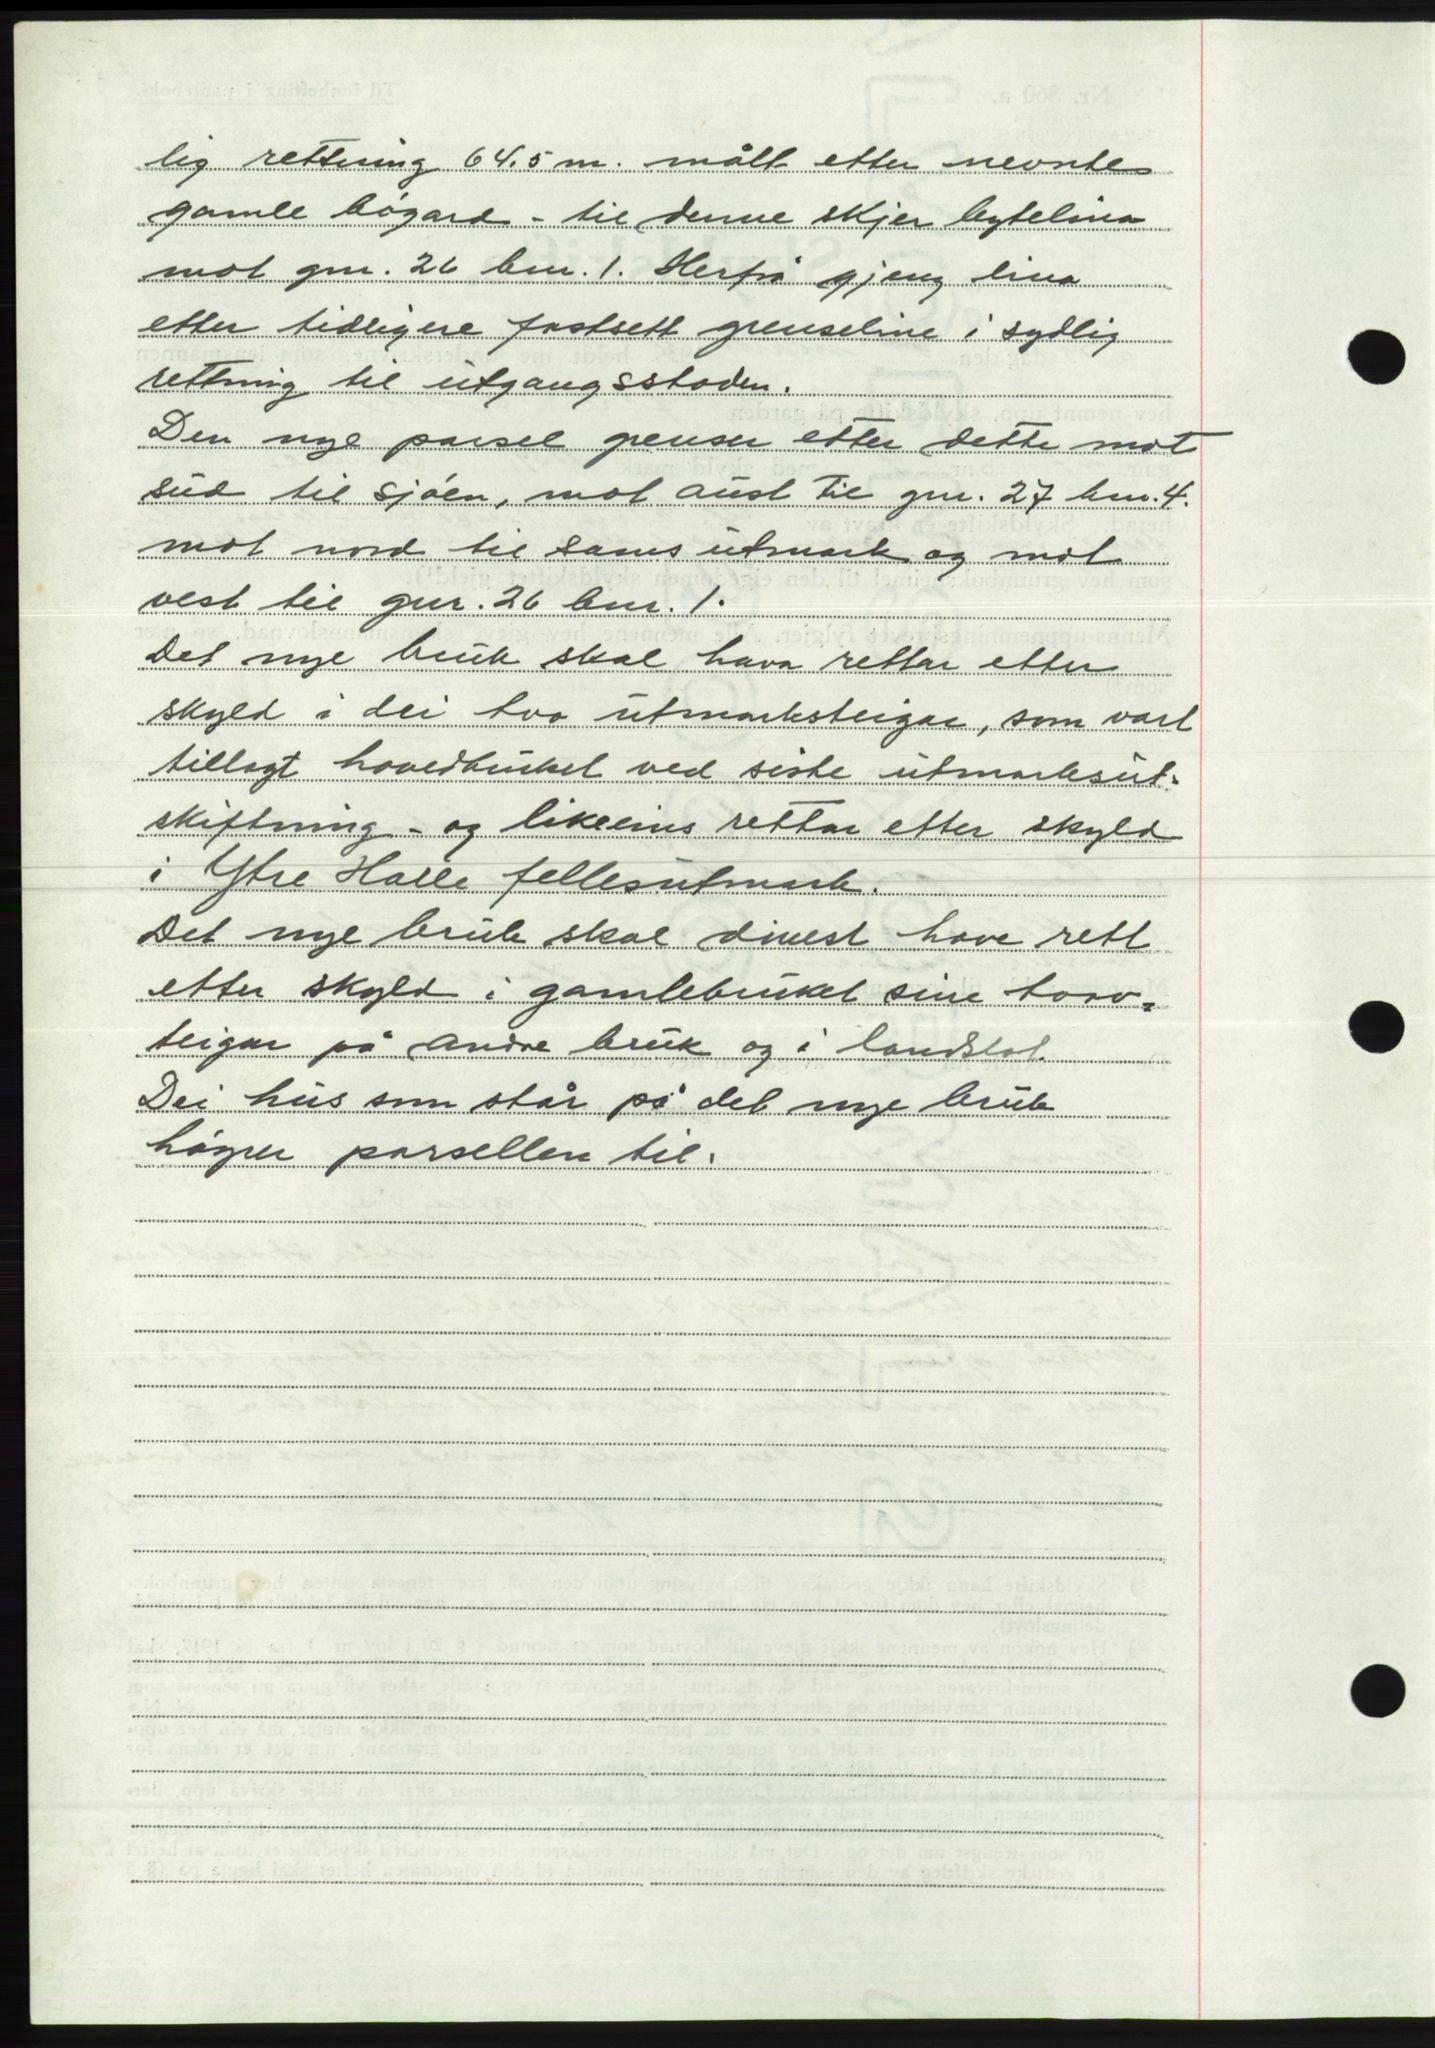 lig rettning 64.5 m. målt etter nevnte
gamle bøgard - til denne skjer bytelina
mot gnr. 26 bnr. 1. Herfrå gjeng lina
etter tidligere fastsett grenseline i sydlig
rettning til utgangsstaden.
Den nye parsel grenser etter dette mot
süd til sjøen, mot aust til gnr. 27 bnr. 4.
mot nord til sams utmark og mot
vest til gnr. 26 bnr. 1.
Det nye bruk skal hava rettar etter
skyld i dei tvo utmarksteigar, som vart
tillagt hovedbruket ved siste utmarksut-
skiftning - og likeeins rettar etter skyld
i Ytre Halle fellesutmark.
Det nye bruk skal dinest have rett
etter skyld i gamlebruket sine torv=
teigar på andre bruk og i landslot.
Dei hus som står på det nye bruk
høyrer parsellen til.